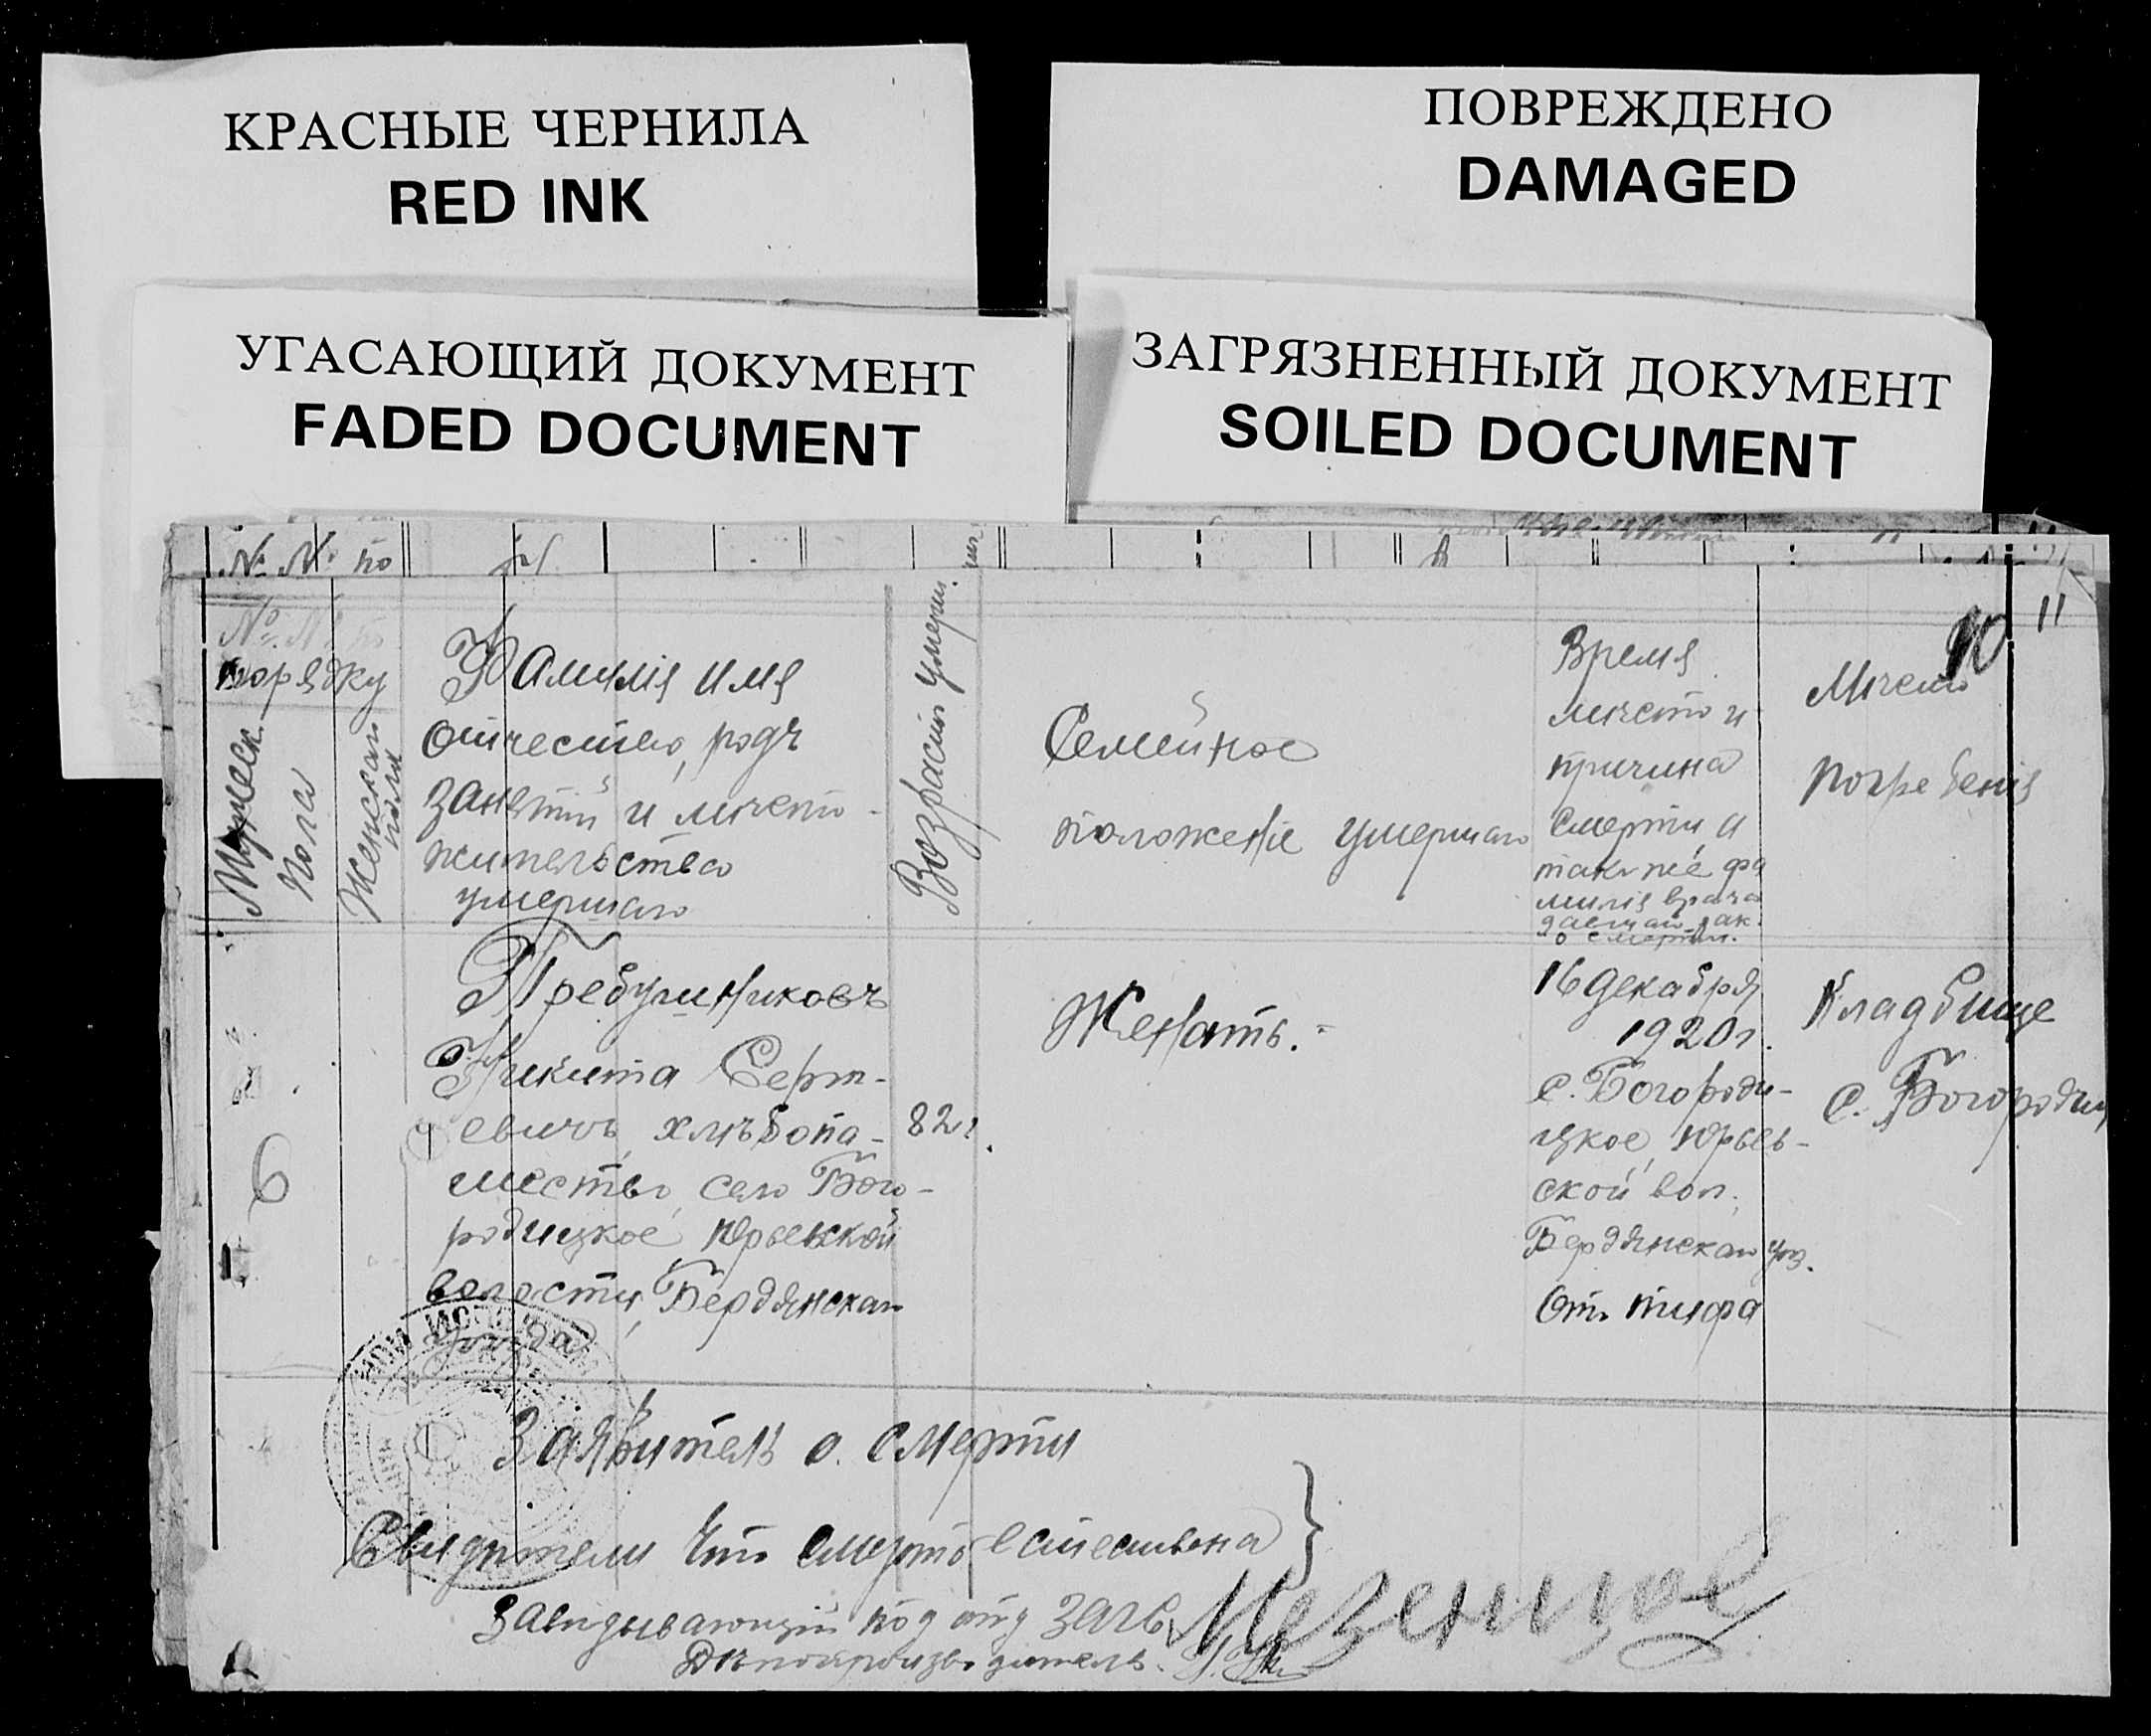 КРАСНЫЕ ЧЕРНИЛА
RED INK
ПОВРЕЖДЕНО
DAMAGED
УГАСАЮЩИЙ ДОКУМЕНТ
FADED DOCUMENT
ЗАГРЯЗНЕННЫЙ ДОКУМЕНТ
SOILED DOCUMENT
№ № по
№ № по
порядку
Мужеск.
пола
Женскаго
пола
Фамилія имя
отчество, родъ
занятій и место-
жительства
умершаго
Возрастъ умерш.
Семейное
положеніе умершаго
Время
место и
причина
смерти и
также фа
милія врача
давшаго
о смерти.
Место
погребенія
10
11
6
Требушниковъ
Никита Серг-
евичъ, хлѣбопа-
шество, село Бого-
родицкое Юрьевской
волости, Бердянскаго
уезда
82 г.
Женатъ.
16 декабря
1920 г.
с. Богороди-
цкое, Юрьев-
ской вол.
Бердянскаго уез.
От тифа
Кладбище
с. Богородиц
Заявитель о смерти
Свидетели что смерть естествена
Заведывающій под отд ЗАГС
Делопроизводитель